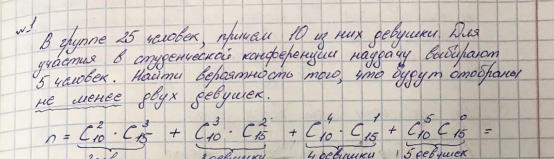 №1
В группе 25 человек, причем 10 из них девушки. Для
участия в студенческой конференции наудачу выбирают
5 человек. Найти вероятность того, что будут отобраны
не менее двух девушек.
n = C₁₀² · C₁₅³ + C₁₀³ · C₁₅² + C₁₀⁴ · C₁₅¹ + C₁₀⁵ C₁₅⁰ =
4 девушки 5 девушек